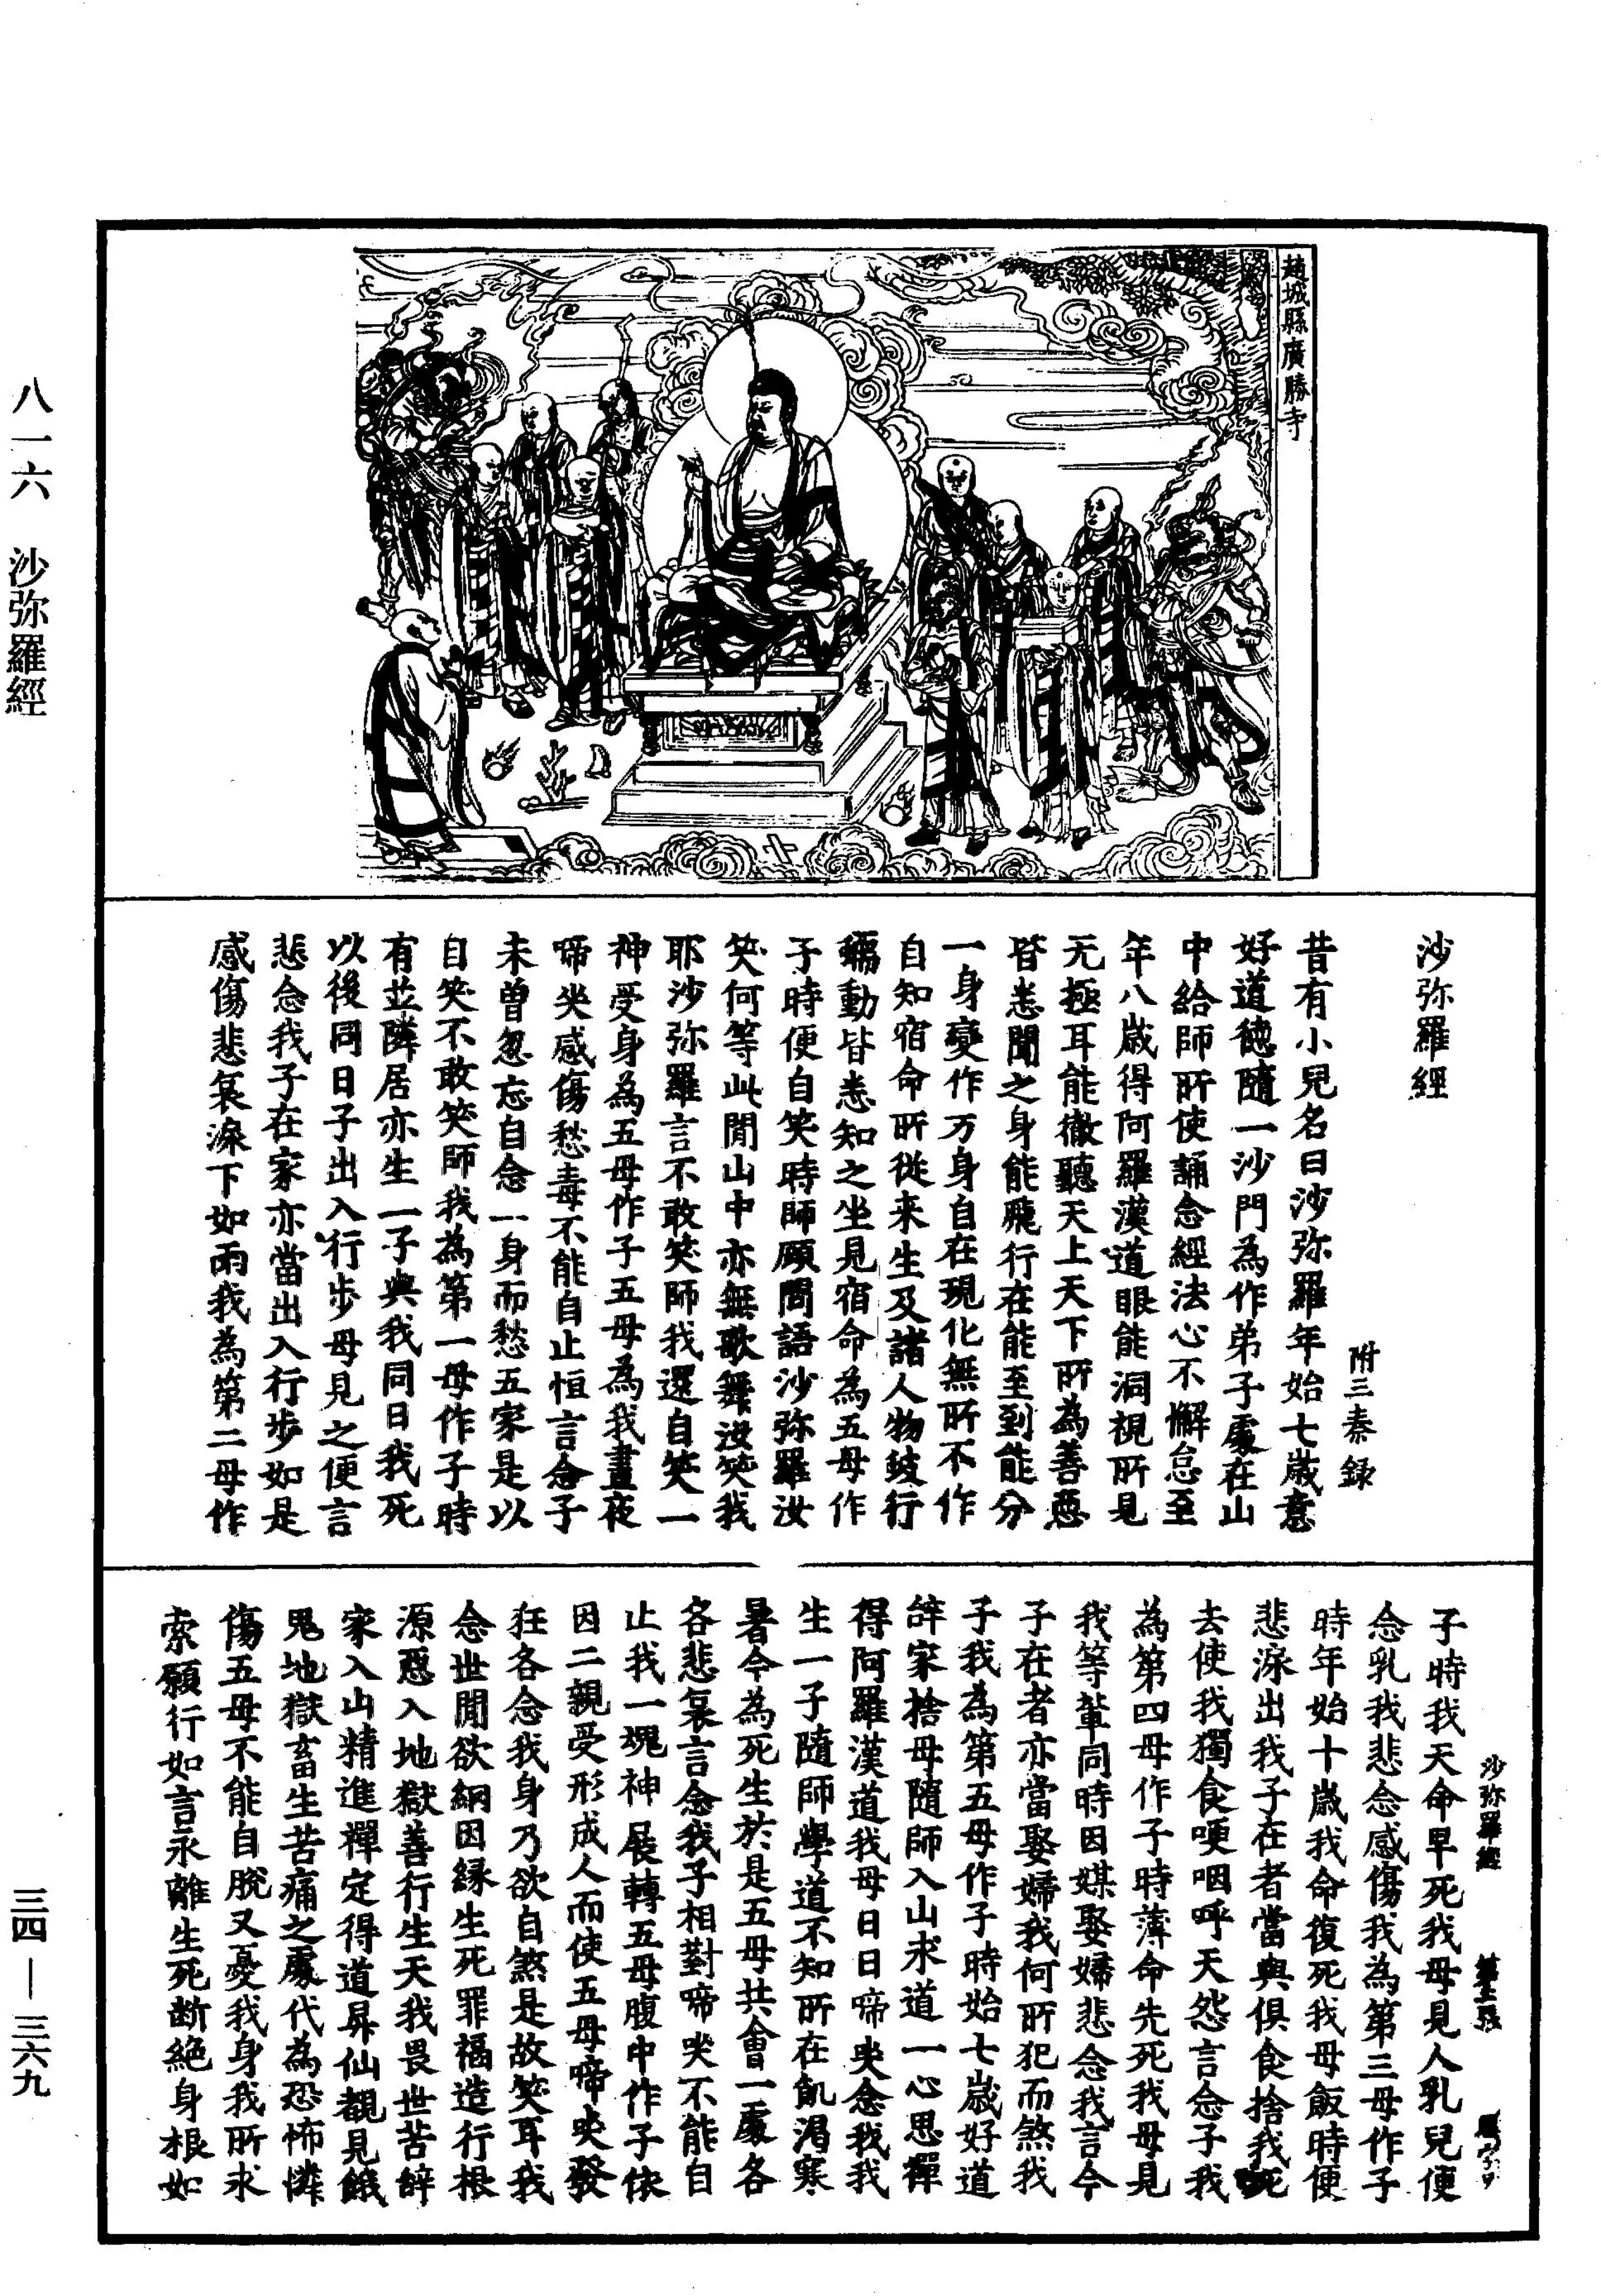 趙城縣廣勝寺
八一六 沙弥羅經
沙弥羅經
附三秦録
昔有小兒名曰沙弥羅年始七歲意
好道德隨一沙門為作弟子處在山
中給師所使誦念經法心不懈怠至
年八歲得阿羅漢道眼能洞視所見
无極耳能徹聽天上天下所為善惡
皆悉聞之身能飛行在能至到能分
一身變作万身自在現化無所不作
自知宿命所從来生及諸人物蚑行
蠕動皆悉知之坐見宿命為五母作
子時便自笑時師顧問語沙弥羅汝
笑何等此閒山中亦無歌舞汝笑我
耶沙弥羅言不敢笑師我還自笑一
神受身為五母作子五母為我晝夜
啼哭感傷愁毒不能自止恒言念子
未曾忽忘自念一身而愁五家是以
自笑不敢笑師我為第一母作子時
有並隣居亦生一子與我同日我死
以後同日子出入行步母見之便言
悲念我子在家亦當出入行步如是
感傷悲哀淚下如雨我為第二母作
子時我夭命早死我母見人乳兒便
念乳我悲念感傷我為第三母作子
時年始十歲我命復死我母飯時便
悲淚出我子在者當與俱食捨我死
去使我獨食哽咽呼天怨言念子我
為第四母作子時薄命先死我母見
我等輩同時因媒娶婦悲念我言今
子在者亦當娶婦我何所犯而煞我
子我為第五母作子時始七歲好道
辝家捨母隨師入山求道一心思禪
得阿羅漢道我母日日啼哭念我我
生一子隨師學道不知所在飢渴寒
暑今為死生於是五母共會一處各
各悲哀言念我子相對啼哭不能自
止我一魂神展轉五母腹中作子依
因二親受形成人而使五母啼哭發
狂各念我身乃欲自煞是故笑耳我
念世閒欲網因緣生死罪福造行根
源惡入地獄善行生天我畏世苦辝
家入山精進禪定得道昇仙覩見餓
鬼地獄畜生苦痛之處代為恐怖憐
傷五母不能自脫又憂我身我所求
索願行如言永離生死断絕身根如
沙弥羅經
三四—三六九